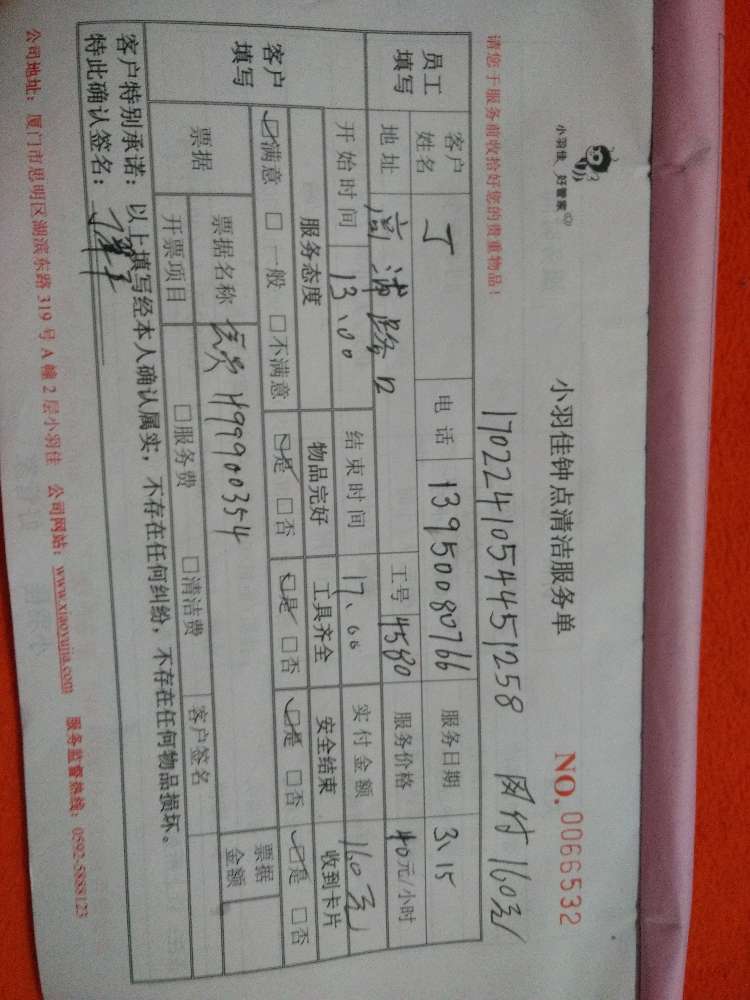 小羽佳 好管家
小羽佳钟点清洁服务单
NO. 0066532
1702241054451258 网付160元
请您于服务前收拾好您的贵重物品！
员工填写 客户姓名 丁 电话 13950080766 服务日期 3、15
地址 路口 工号 4580 服务价格 40元/小时
开始时间 13、00 结束时间 17、00 实付金额 160元
客户填写 服务态度 物品完好 工具齐全 安全结束 收到卡片
☑满意 □一般 □不满意 ☑是 □否 ☑是 □否 ☑是 □否 ☑是 □否
票据 票据名称 H99900354 票据金额
开票项目 □服务费 □清洁费 客户签名
客户特别承诺：以上填写经本人确认属实，不存在任何纠纷，不存在任何物品损坏。
特此确认签名：
公司地址：厦门市思明区湖滨东路319号A幢2层小羽佳 公司网站：www.xiaoyujia.com 服务监督热线：0592-5888123